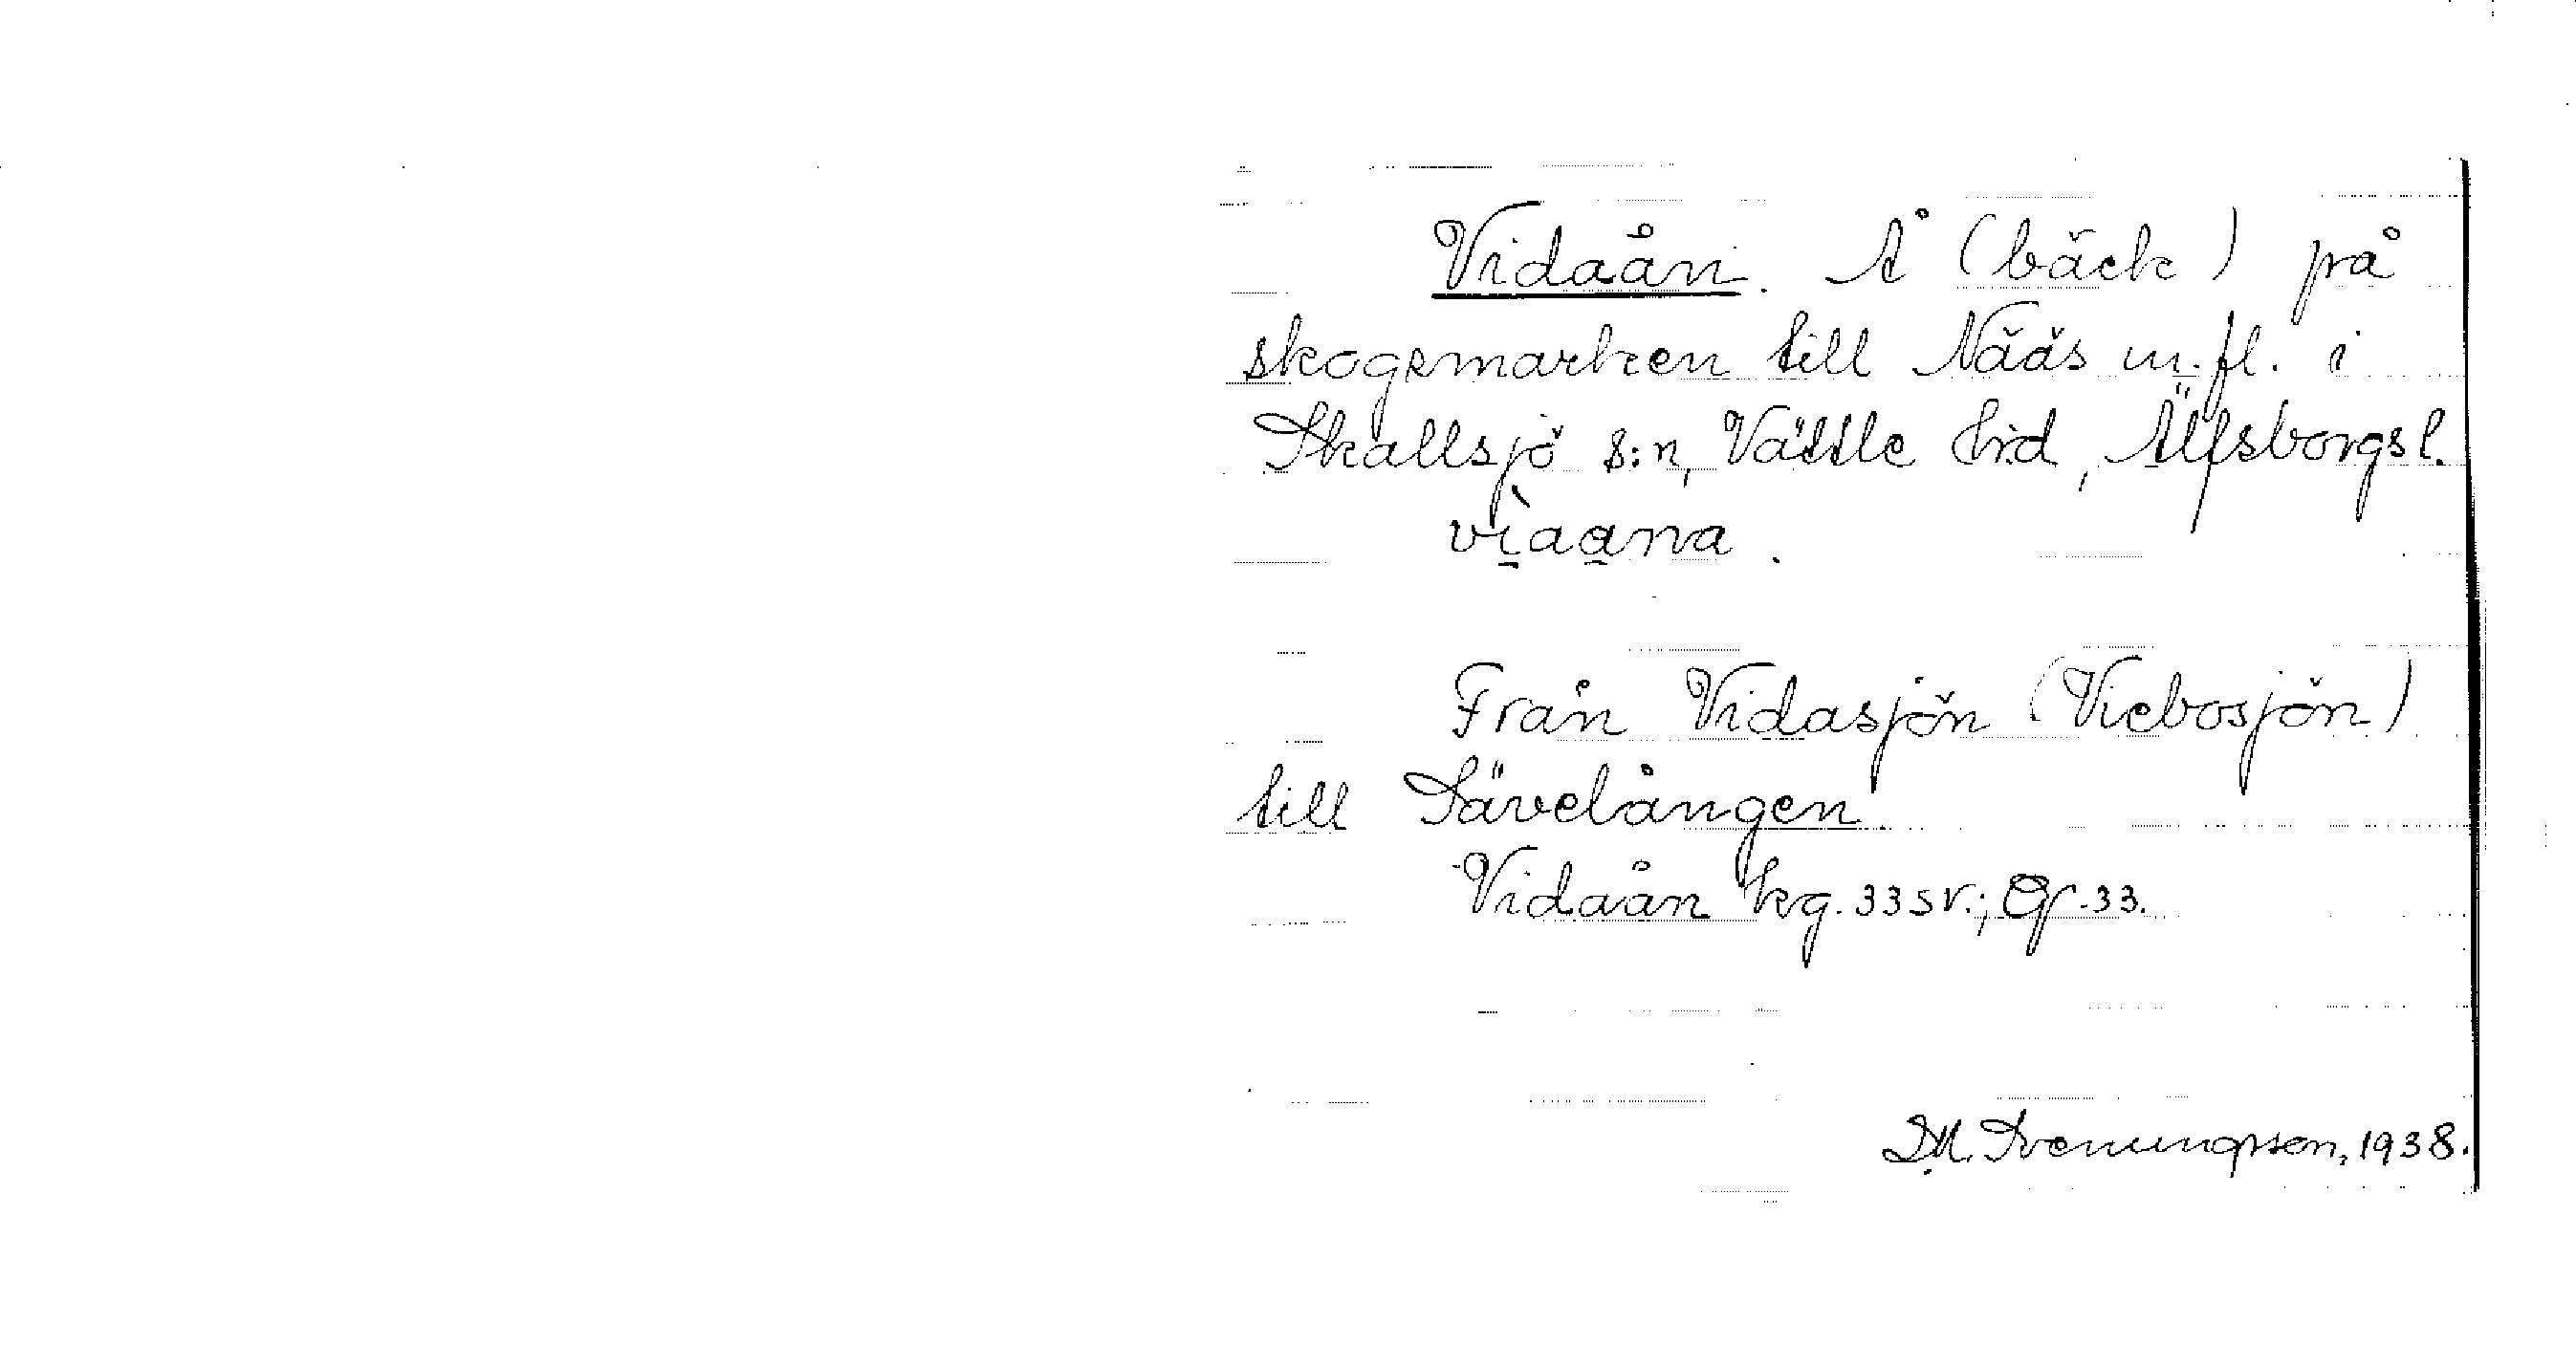 Vidaån. Å (bäck) på
skogsmarken till Nääs m.fl. i
Skallsjö s:n, Vättle hd, Älfsborgs l.
vìaana.
Från Vidasjön (Viebosjön)
till Sävelången.
Vidaån kg. 33 sv.; Gf. 33.
D.M. Svenungsson, 1938.